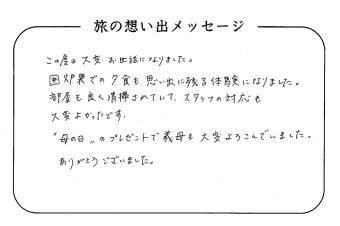 旅の想い出メッセージ
この度は大変お世話になりました。
囲炉裏での夕食も思い出に残る体験になりました。
部屋も良く清掃されていて、スタッフの対応も
大変よかったです。
"母の日"のプレゼントで義母も大変よろこんでいました。
ありがとうございました。